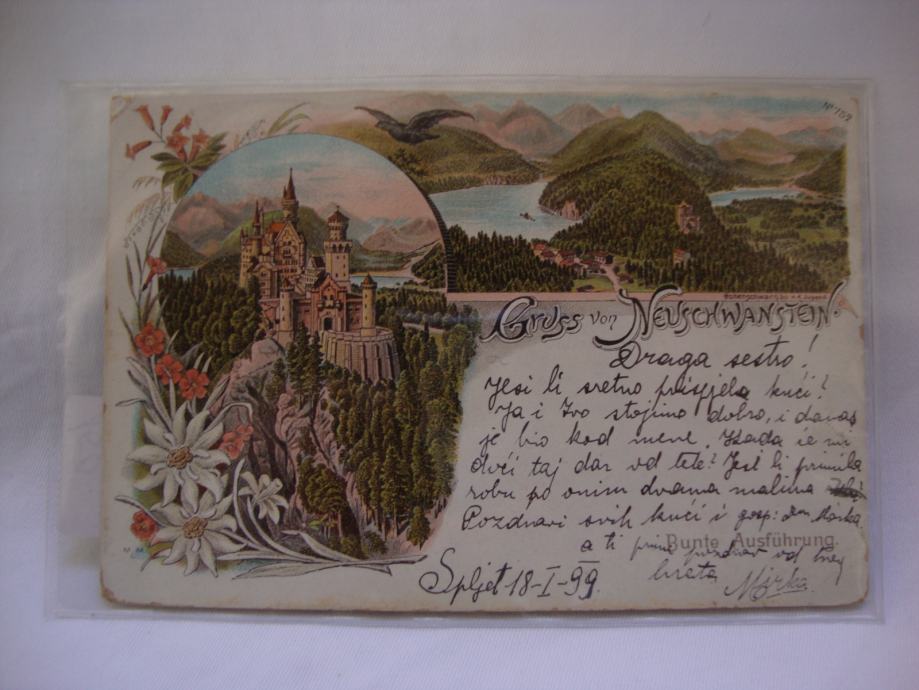 No 159
Hohenschwangau
Gruss von Neuschwanstein
Draga sestro!
Jesi li sretno prispjela kući?
Ja i Ivo stojimo dobro, i danas
je bio kod mene. Kada će mi
doći taj dar od tete? Jesi li primila
robu po onim dvama malima
Pozdravi svih kući i gosp: dom Marka
Bunte Ausführung.
a ti primi pozdrav od tvog
brata Mirka
Spljet 18-I-99.